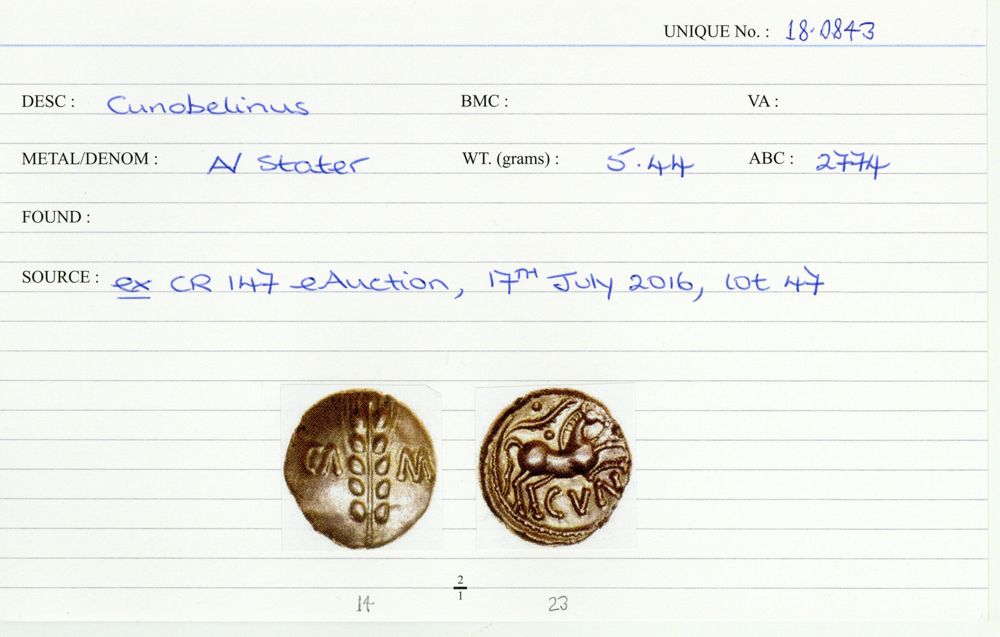 UNIQUE No. : 18·0843
DESC : Cunobelinus BMC : VA :
METAL/DENOM : A/ Stater WT. (grams) : 5·44 ABC : 2774
FOUND :
SOURCE : ex CR 147 eAuction, 17TH July 2016, lot 47
CA M
CVN
2
1
14 23